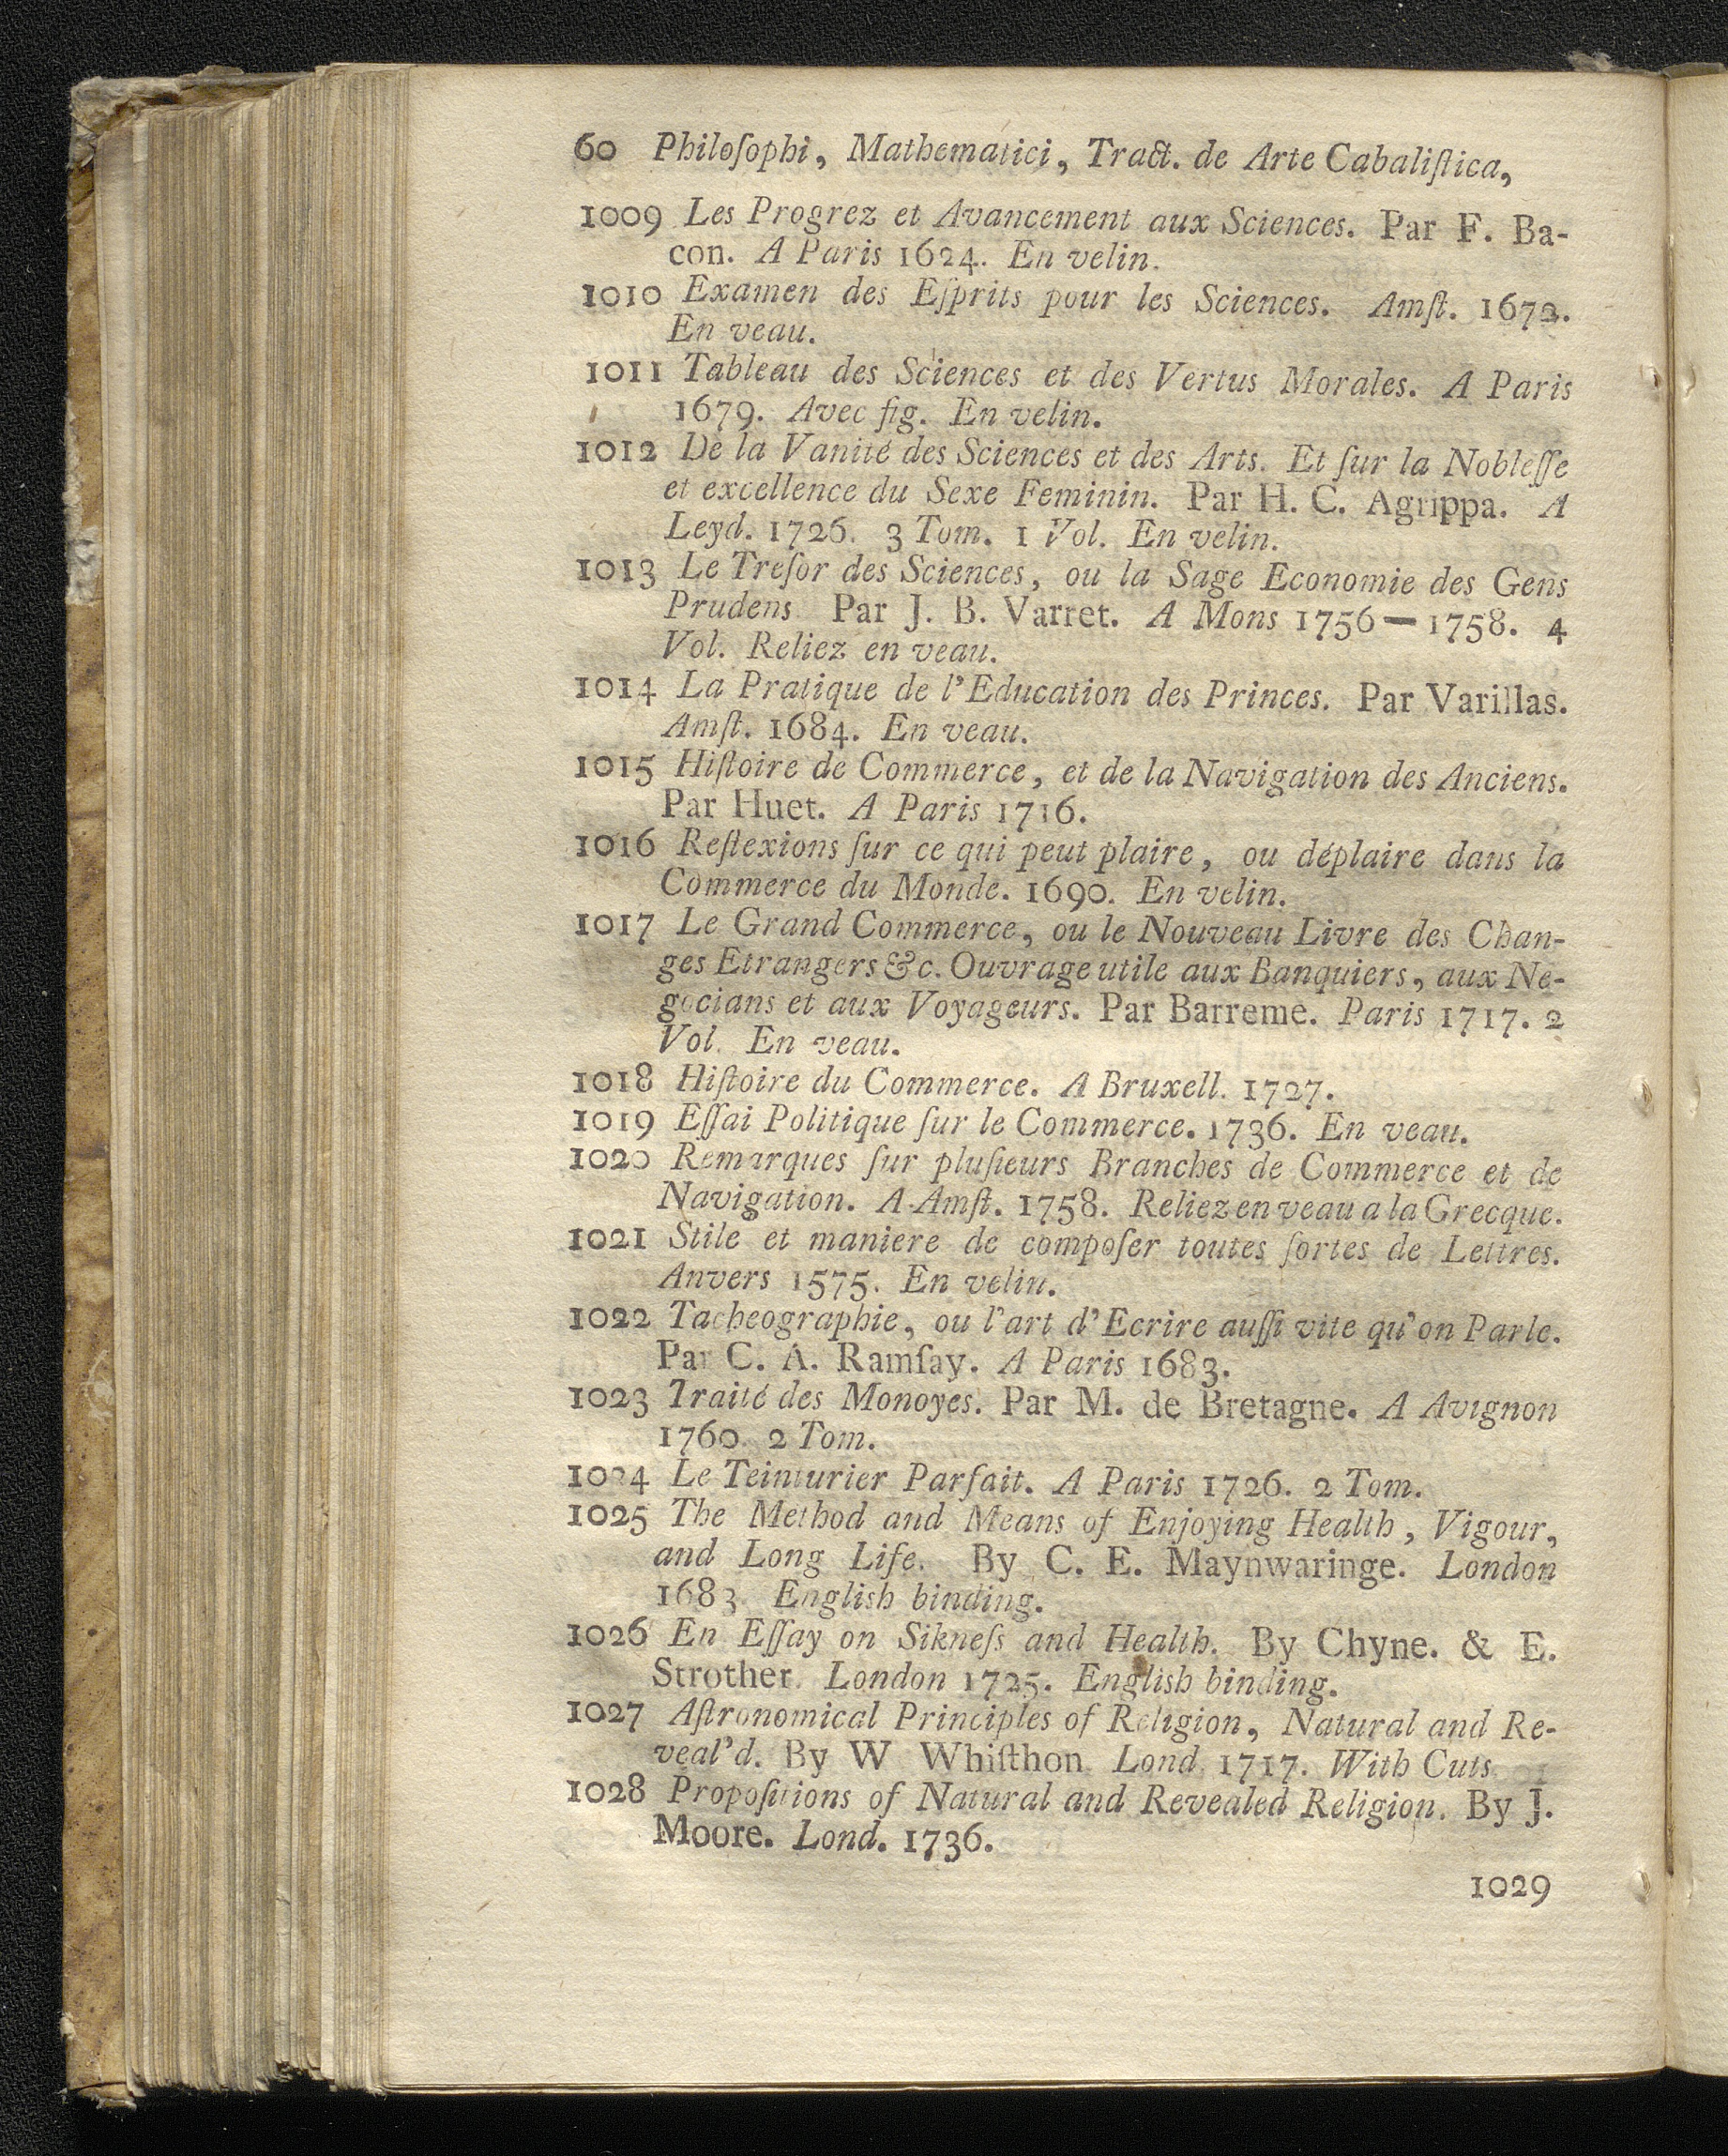 60 Philoſophi, Mathematici, Tract. de Arte Cabaliſtica,
1009 Les Progrez et Avancement aux Sciences. Par F. Ba-
con. A Paris 1624. En velin.
1010 Examen des Eſprits pour les Sciences. Amſt. 1672.
En veau.
1011 Tableau des Sciences et des Vertus Morales. A Paris
1679. Avec fig. En velin.
1012 De la Vanité des Sciences et des Arts. Et ſur la Nobleſſe
et excellence du Sexe Feminin. Par H. C. Agrippa. A
Leyd. 1726. 3 Tom. 1 Vol. En velin.
1013 Le Treſor des Sciences, ou la Sage Economie des Gens
Prudens. Par J. B. Varret. A Mons 1756 — 1758. 4
Vol. Reliez en veau.
1014 La Pratique de l'Education des Princes. Par Varillas.
Amſt. 1684. En veau.
1015 Hiſtoire de Commerce, et de la Navigation des Anciens.
Par Huet. A Paris 1716.
1016 Reflexions ſur ce qui peut plaire, ou déplaire dans la
Commerce du Monde. 1690. En velin.
1017 Le Grand Commerce, ou le Nouveau Livre des Chan-
ges Etrangers &c. Ouvrage utile aux Banquiers, aux Ne-
gocians et aux Voyageurs. Par Barreme. Paris 1717. 2
Vol. En veau.
1018 Hiſtoire du Commerce. A Bruxell. 1727.
1019 Eſſai Politique ſur le Commerce. 1736. En veau.
1020 Remarques ſur pluſieurs Branches de Commerce et de
Navigation. A Amſt. 1758. Reliez en veau a la Grecque.
1021 Stile et maniere de compoſer toutes ſortes de Lettres.
Anvers 1575. En velin.
1022 Tacheographie, ou l'art d'Ecrire auſſi vite qu'on Parle.
Par C. A. Ramſay. A Paris 1683.
1023 Traité des Monoyes. Par M. de Bretagne. A Avignon
1760. 2 Tom.
1024 Le Teinturier Parfait. A Paris 1726. 2 Tom.
1025 The Method and Means of Enjoying Health, Vigour,
and Long Life. By C. E. Maynwaringe. London
1683. English binding.
1026 En Eſſay on Sikneſs and Health. By Chyne. & E.
Strother. London 1725. English binding.
1027 Aſtronomical Principles of Religion, Natural and Re-
veal'd. By W Whiſthon Lond. 1717. With Cuts.
1028 Propoſitions of Natural and Revealed Religion. By J.
Moore. Lond. 1736.
1029